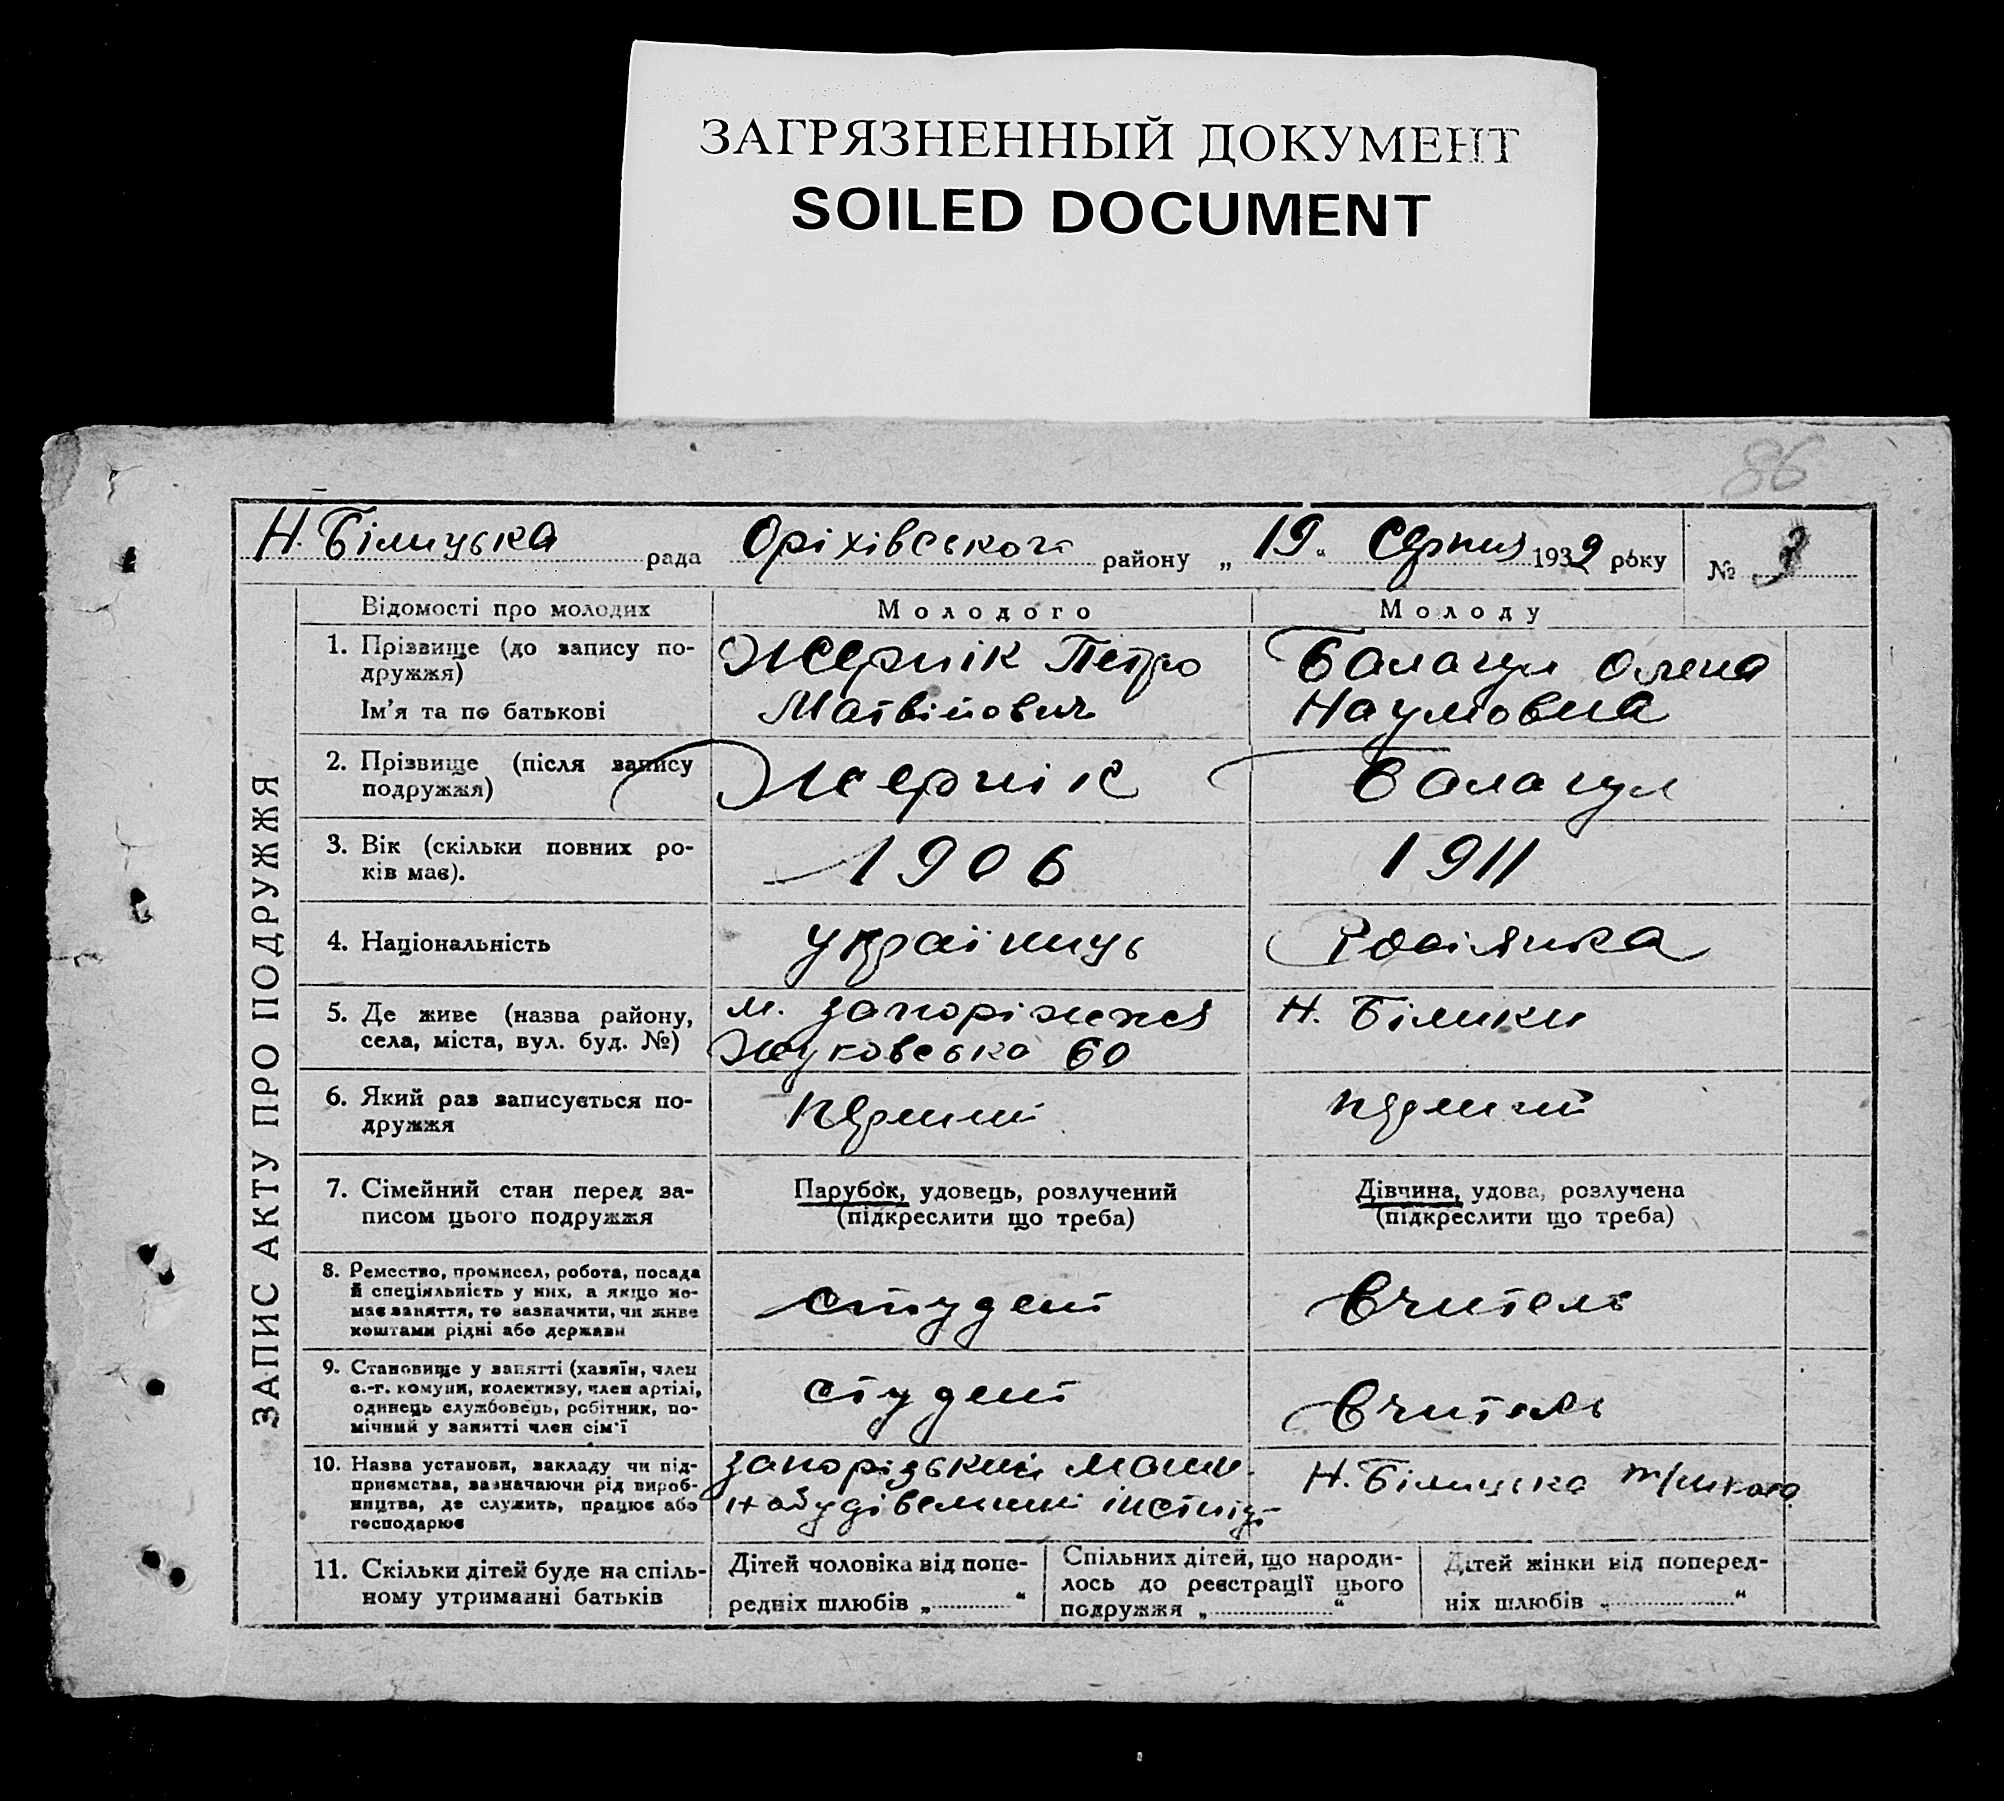 ЗАГРЯЗНЕННЫЙ ДОКУМЕНТ
SOILED DOCUMENT
86
Н. Білицька рада Оріхівського району „ 19 “ Серпня 1932 року № 3
ЗАПИС АКТУ ПРО ПОДРУЖЖЯ
Відомості про молодих Молодого Молоду
1. Прізвище (до запису по- Жернік Петро Балагул Олена
дружжя)
Ім'я та по батькові Матвійович Наумовна
2. Прізвище (після запису Жернік Балагул
подружжя)
3. Вік (скільки повних ро- 1906 1911
ків має).
4. Національність українець Росіянка
5. Де живе (назва району, м. Запоріжжя Н. Білики
села, міста, вул. буд. №) Жуковська 60
6. Який раз записується по- перший перший
дружжя
7. Сімейний стан перед за- Парубок, удовець, розлучений Дівчина, удова, розлучена
писом цього подружжя (підкреслити що треба) (підкреслити що треба)
8. Ремество, промисел, робота, посада
й спеціяльність у них, а якщо не- студент Вчитель
має заняття, то зазначити, чи живе
коштами рідні або держави
9. Становище у занятті (хазяїн, член
с.-г. комуни, колективу, член артілі, студент Вчитель
одинець службовець, робітник, по-
мічний у занятті член сім'ї
10. Назва установи, закладу чи під- Запорізький маши- Н. Білицька т/школа
приємства, зазначаючи рід вироб- нобудівельний інститут
ництва, де служить, працює або
господарює
11. Скільки дітей буде на спіль- Дітей чоловіка від попе- Спільних дітей, що народи- Дітей жінки від поперед-
ному утриманні батьків редніх шлюбів „ “ лось до реєстрації цього ніх шлюбів „ “
подружжя „ “